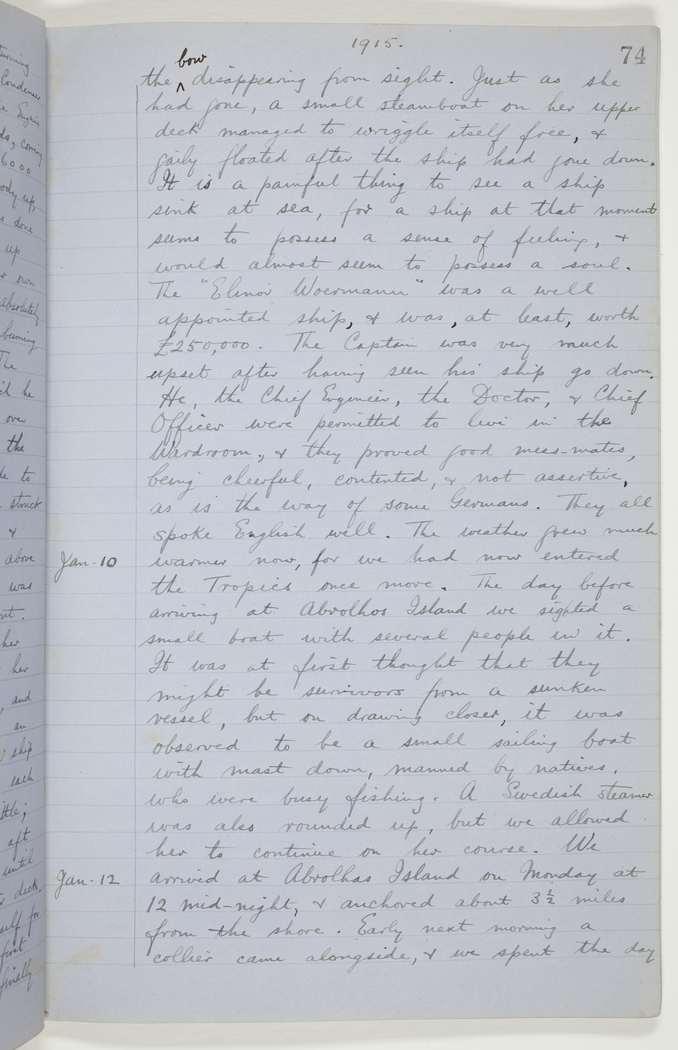 1915.
74
bow
the ^ disappearing from sight. Just as she
had gone, a small steamboat on her upper
deck managed to wriggle itself free, &
gaily floated after the ship had gone down.
It is a painful thing to see a ship
sink at sea, for a ship at that moment
seems to possess a sense of feeling, &
would almost seem to possess a soul.
The "Elinor Woermann" was a well
appointed ship, & was, at least, worth
£250,000. The Captain was very much
upset after having seen his ship go down.
He, the Chief Engineer, the Doctor, & Chief
Officer were permitted to live in the
Wardroom, & they proved good mess-mates,
being cheerful, contented, & not assertive,
as is the way of some Germans. They all
spoke English well. The weather grew much
Jan. 10 warmer now, for we had now entered
the Tropics once more. The day before
arriving at Abrolhos Island we sighted a
small boat with several people in it.
It was at first thought that they
might be survivors from a sunken
vessel, but on drawing closer, it was
observed to be a small sailing boat
with mast down, manned by natives,
who were busy fishing. A Swedish steamer
was also rounded up, but we allowed
her to continue on her course. We
Jan. 12 arrived at Abrolhas Island on Monday at
12 mid-night, & anchored about 3½ miles
from the shore. Early next morning a
collier came alongside, & we spent the day